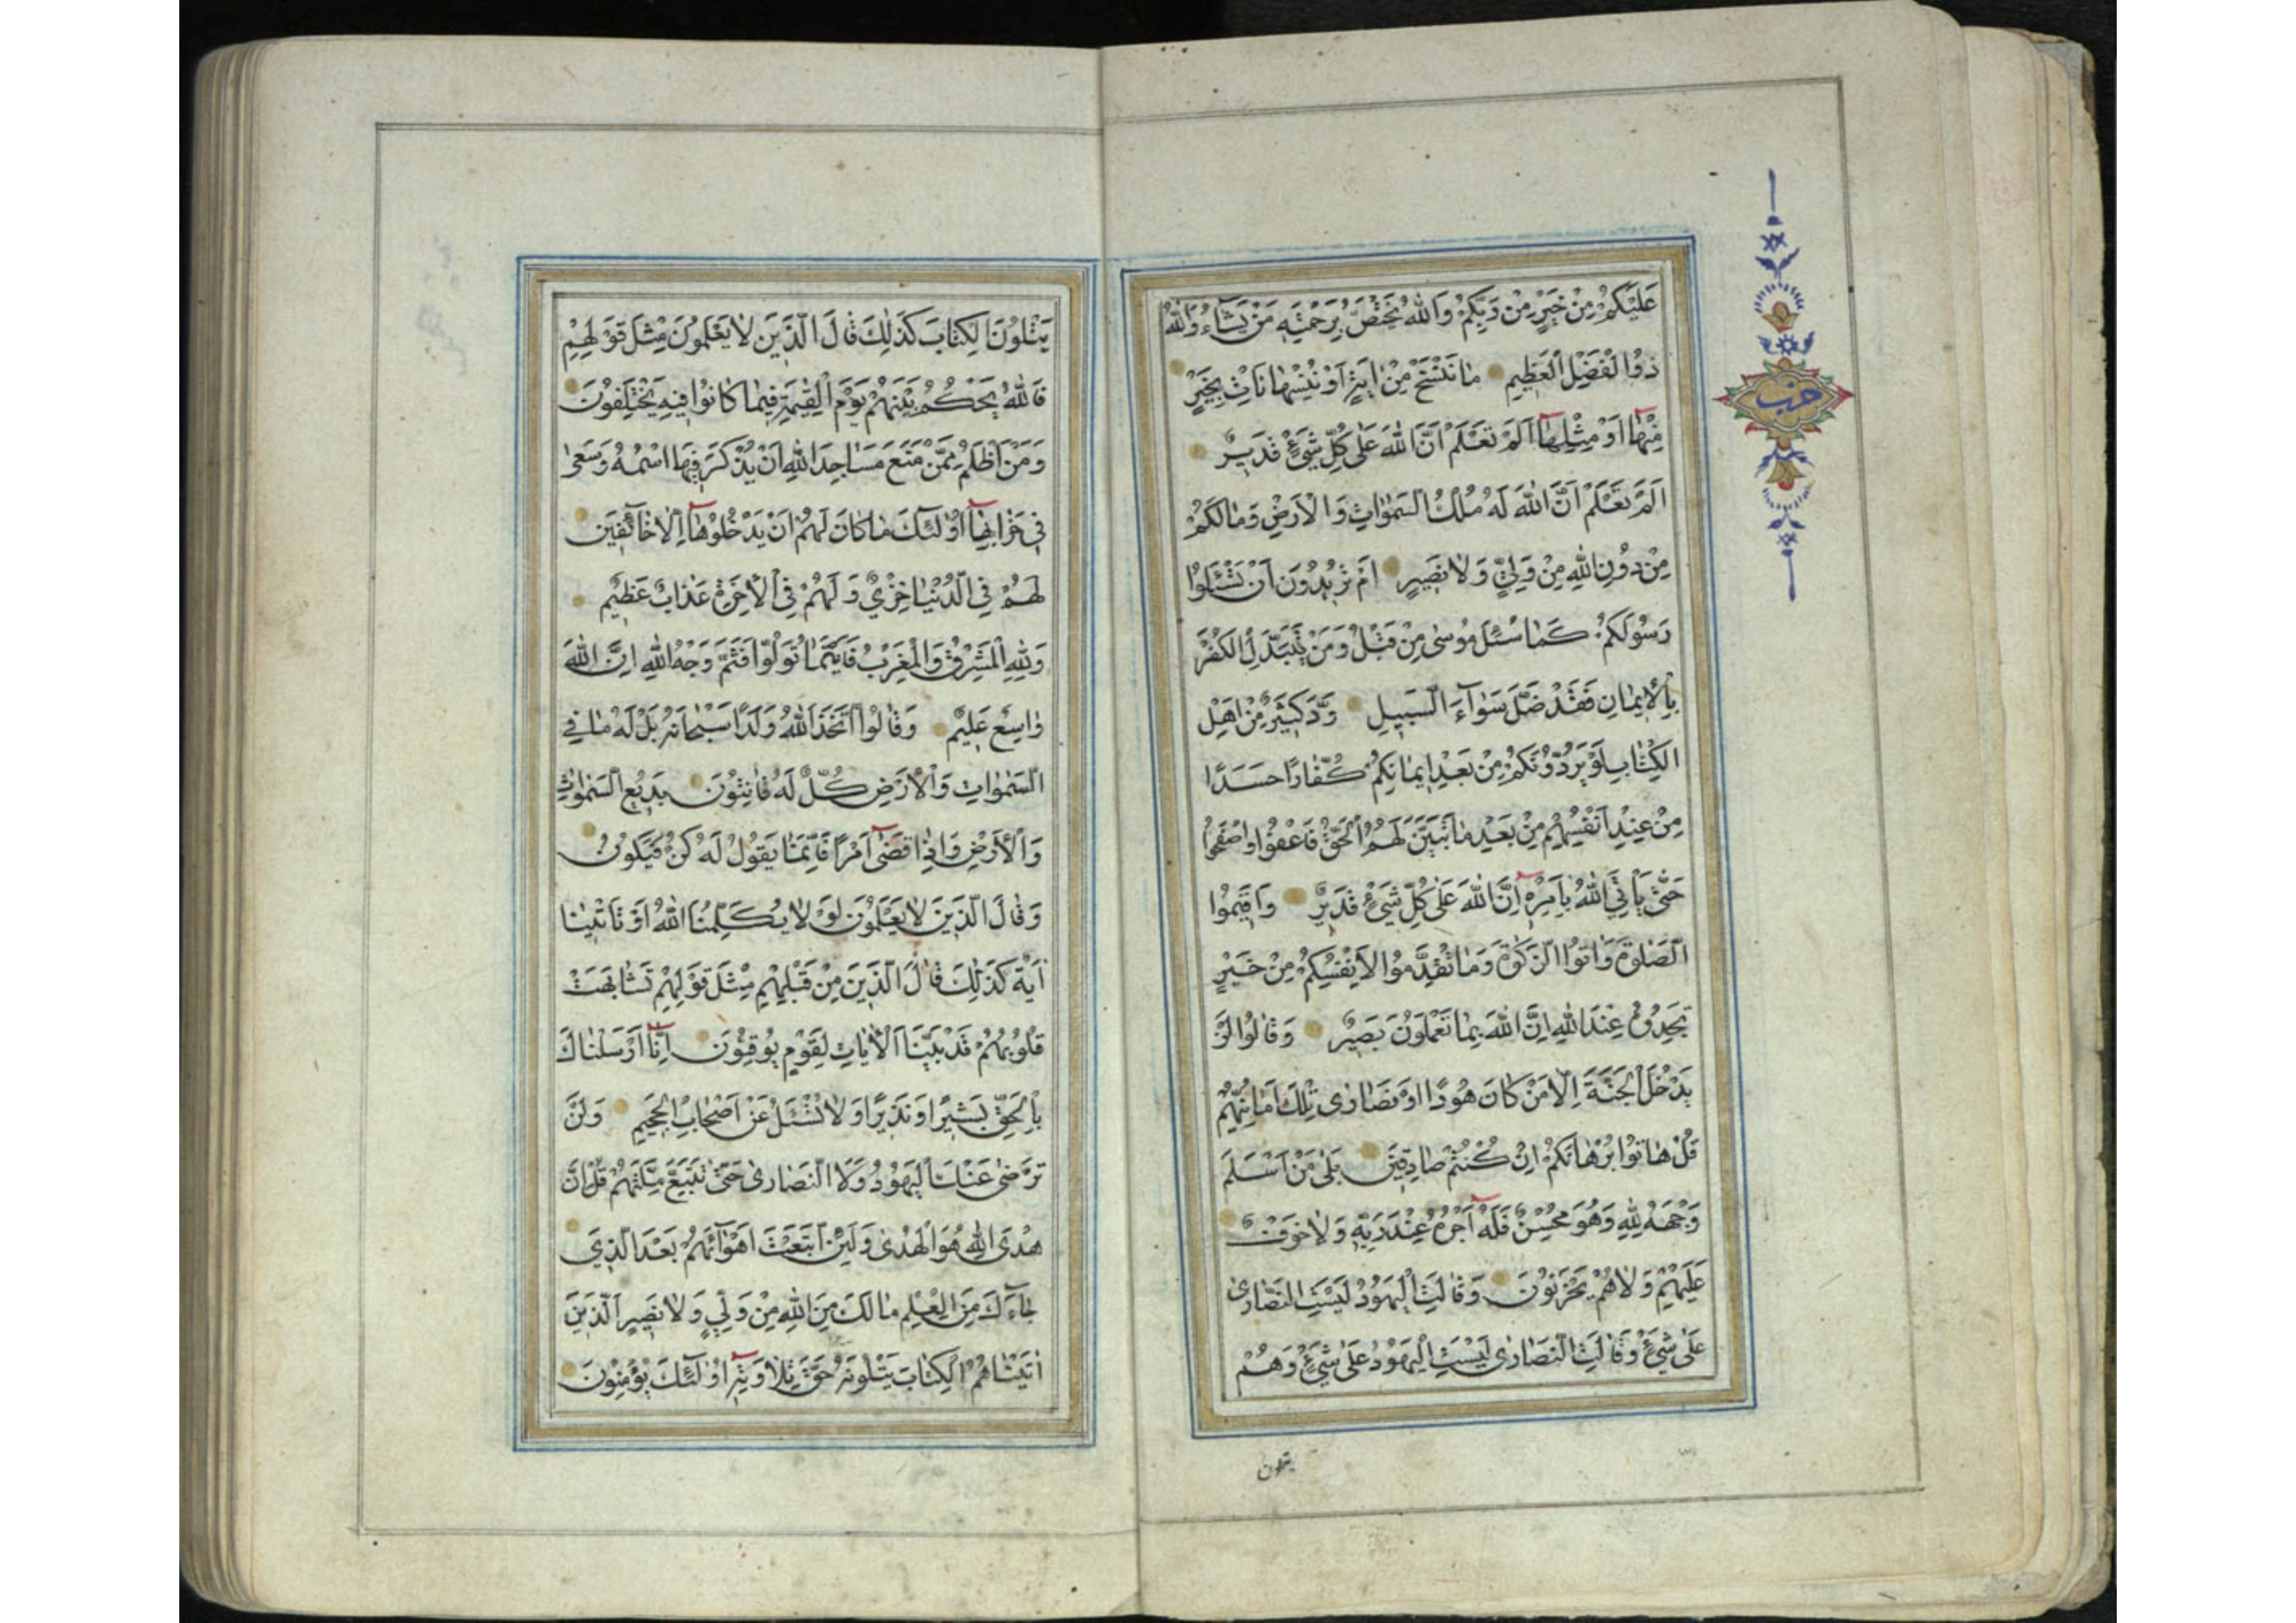 عَلَيْكُمْ مِنْ خَيْرٍ مِنْ رَبِّكُمْ وَاللّٰهُ يَخْتَصُّ بِرَحْمَتِهِ مَنْ يَشَآءُ وَاللّٰهُ
ذُوا الْفَضْلِ الْعَظِيمِ مٰا نَنْسَخْ مِنْ اٰيَةٍ اَوْ نُنْسِهٰا نَأْتِ بِخَيْرٍ
مِنْهٰا اَوْ مِثْلِهٰا اَلَمْ تَعْلَمْ اَنَّ اللّٰهَ عَلٰى كُلِّ شَيْءٍ قَدِيرٌ
اَلَمْ تَعْلَمْ اَنَّ اللّٰهَ لَهُ مُلْكُ السَّمٰوٰاتِ وَالْاَرْضِ وَمٰا لَكُمْ
مِنْ دُونِ اللّٰهِ مِنْ وَلِيٍّ وَلٰا نَصِيرٍ اَمْ تُرِيدُونَ اَنْ تَسْئَلُوا
رَسُولَكُمْ كَمٰا سُئِلَ مُوسٰى مِنْ قَبْلُ وَمَنْ يَتَبَدَّلِ الْكُفْرَ
بِالْاِيمٰانِ فَقَدْ ضَلَّ سَوٰآءَ السَّبِيلِ وَدَّ كَثِيرٌ مِنْ اَهْلِ
الْكِتٰابِ لَوْ يَرُدُّونَكُمْ مِنْ بَعْدِ اِيمٰانِكُمْ كُفّٰارًا حَسَدًا
مِنْ عِنْدِ اَنْفُسِهِمْ مِنْ بَعْدِ مٰا تَبَيَّنَ لَهُمُ الْحَقُّ فَاعْفُوا وَاصْفَحُوا
حَتّٰى يَأْتِيَ اللّٰهُ بِاَمْرِهِ اِنَّ اللّٰهَ عَلٰى كُلِّ شَيْءٍ قَدِيرٌ وَاَقِيمُوا
الصَّلٰوةَ وَاٰتُوا الزَّكٰوةَ وَمٰا تُقَدِّمُوا لِاَنْفُسِكُمْ مِنْ خَيْرٍ
تَجِدُوهُ عِنْدَ اللّٰهِ اِنَّ اللّٰهَ بِمٰا تَعْمَلُونَ بَصِيرٌ وَقٰالُوا لَنْ
يَدْخُلَ الْجَنَّةَ اِلّٰا مَنْ كٰانَ هُودًا اَوْ نَصٰارٰى تِلْكَ اَمٰانِيُّهُمْ
قُلْ هٰاتُوا بُرْهٰانَكُمْ اِنْ كُنْتُمْ صٰادِقِينَ بَلٰى مَنْ اَسْلَمَ
وَجْهَهُ لِلّٰهِ وَهُوَ مُحْسِنٌ فَلَهُ اَجْرُهُ عِنْدَ رَبِّهِ وَلٰا خَوْفٌ
عَلَيْهِمْ وَلٰا هُمْ يَحْزَنُونَ وَقٰالَتِ الْيَهُودُ لَيْسَتِ النَّصٰارٰى
عَلٰى شَيْءٍ وَقٰالَتِ النَّصٰارٰى لَيْسَتِ الْيَهُودُ عَلٰى شَيْءٍ وَهُمْ
يتلون
حزب
يَتْلُونَ الْكِتٰابَ كَذٰلِكَ قٰالَ الَّذِينَ لٰا يَعْلَمُونَ مِثْلَ قَوْلِهِمْ
فَاللّٰهُ يَحْكُمُ بَيْنَهُمْ يَوْمَ الْقِيٰمَةِ فِيمٰا كٰانُوا فِيهِ يَخْتَلِفُونَ
وَمَنْ اَظْلَمُ مِمَّنْ مَنَعَ مَسٰاجِدَ اللّٰهِ اَنْ يُذْكَرَ فِيهَا اسْمُهُ وَسَعٰى
فِي خَرٰابِهٰا اُولٰئِكَ مٰا كٰانَ لَهُمْ اَنْ يَدْخُلُوهٰا اِلّٰا خٰائِفِينَ
لَهُمْ فِي الدُّنْيٰا خِزْيٌ وَلَهُمْ فِي الْاٰخِرَةِ عَذٰابٌ عَظِيمٌ
وَلِلّٰهِ الْمَشْرِقُ وَالْمَغْرِبُ فَاَيْنَمٰا تُوَلُّوا فَثَمَّ وَجْهُ اللّٰهِ اِنَّ اللّٰهَ
وٰاسِعٌ عَلِيمٌ وَقٰالُوا اتَّخَذَ اللّٰهُ وَلَدًا سُبْحٰانَهُ بَلْ لَهُ مٰا فِي
السَّمٰوٰاتِ وَالْاَرْضِ كُلٌّ لَهُ قٰانِتُونَ بَدِيعُ السَّمٰوٰاتِ
وَالْاَرْضِ وَاِذٰا قَضٰى اَمْرًا فَاِنَّمٰا يَقُولُ لَهُ كُنْ فَيَكُونُ
وَقٰالَ الَّذِينَ لٰا يَعْلَمُونَ لَوْ لٰا يُكَلِّمُنَا اللّٰهُ اَوْ تَأْتِينٰا
اٰيَةٌ كَذٰلِكَ قٰالَ الَّذِينَ مِنْ قَبْلِهِمْ مِثْلَ قَوْلِهِمْ تَشٰابَهَتْ
قُلُوبُهُمْ قَدْ بَيَّنَّا الْاٰيٰاتِ لِقَوْمٍ يُوقِنُونَ اِنّٰا اَرْسَلْنٰاكَ
بِالْحَقِّ بَشِيرًا وَنَذِيرًا وَلٰا تُسْئَلُ عَنْ اَصْحٰابِ الْجَحِيمِ وَلَنْ
تَرْضٰى عَنْكَ الْيَهُودُ وَلَا النَّصٰارٰى حَتّٰى تَتَّبِعَ مِلَّتَهُمْ قُلْ اِنَّ
هُدَى اللّٰهِ هُوَ الْهُدٰى وَلَئِنِ اتَّبَعْتَ اَهْوٰآئَهُمْ بَعْدَ الَّذِي
جٰآءَكَ مِنَ الْعِلْمِ مٰا لَكَ مِنَ اللّٰهِ مِنْ وَلِيٍّ وَلٰا نَصِيرٍ الَّذِينَ
اٰتَيْنٰاهُمُ الْكِتٰابَ يَتْلُونَهُ حَقَّ تِلٰاوَتِهِ اُولٰئِكَ يُؤْمِنُونَ